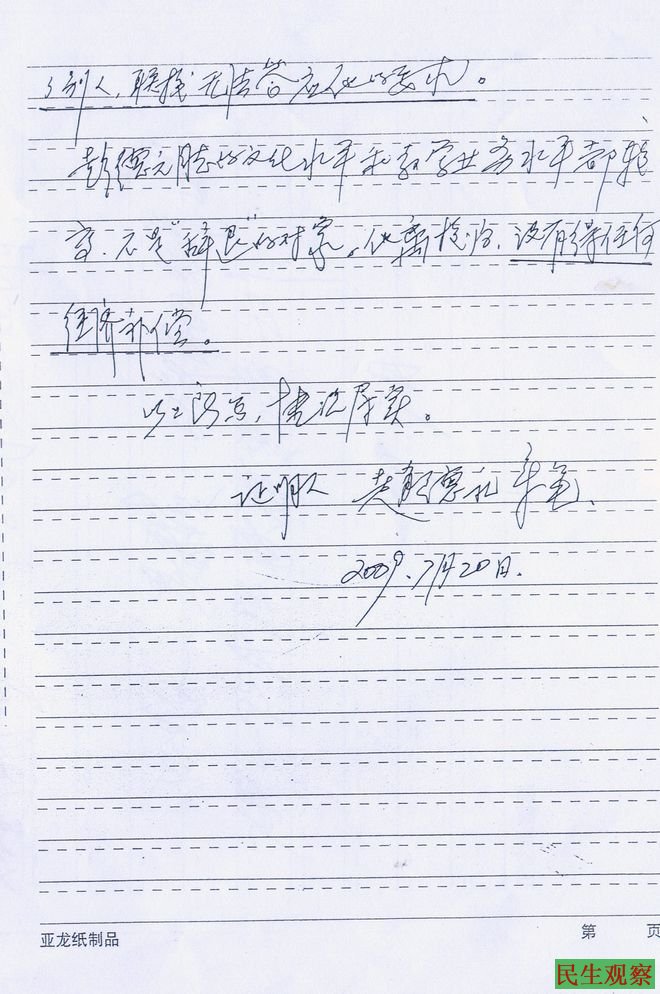 了别人，联校无法答应他的要求。
彭德元同志的文化水平和教学业务水平都较
高，不是“辞退”的对象。他离校后，没有得任何
经济补偿。
以上所写，情况属实。
证明人 赵德礼 亲笔
2009.7月20日.
亚龙纸制品
第 页
民生观察